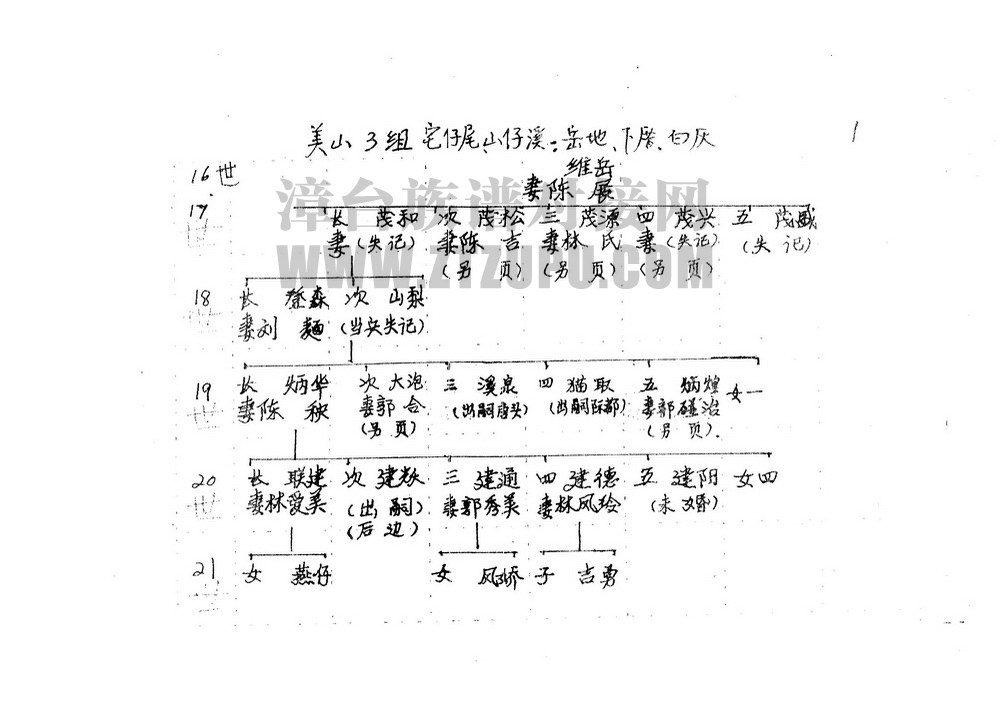 美山3组宅仔尾、山仔溪:岳地、下厝、白灰 1
16世 维岳
妻陈展
漳台族谱对接网
www.ztzupu.com
17 长 茂和 次 茂松 三 茂源 四 茂兴 五 茂盛
妻(失记) 妻陈 吉 妻林 氏 妻(失记) (失记)
(另页) (另页) (另页)
18 长 登森 次 山梨
妻刘 (当兵失记)
19 长 炳华 次 大泡 三 溪泉 四 猫取 五 炳煌 女一
世 妻陈 秧 妻郭合 (出嗣唐头) (出嗣陈都) 妻郭碰治
(另页) (另页).
20 长 联建 次 建 三 建通 四 建德 五 建阳 女四
世 妻林爱美 (出嗣) 妻郭秀美 妻林风玲 (未婚)
(后边)
21 女 燕仔 女 凤娇 子 吉勇